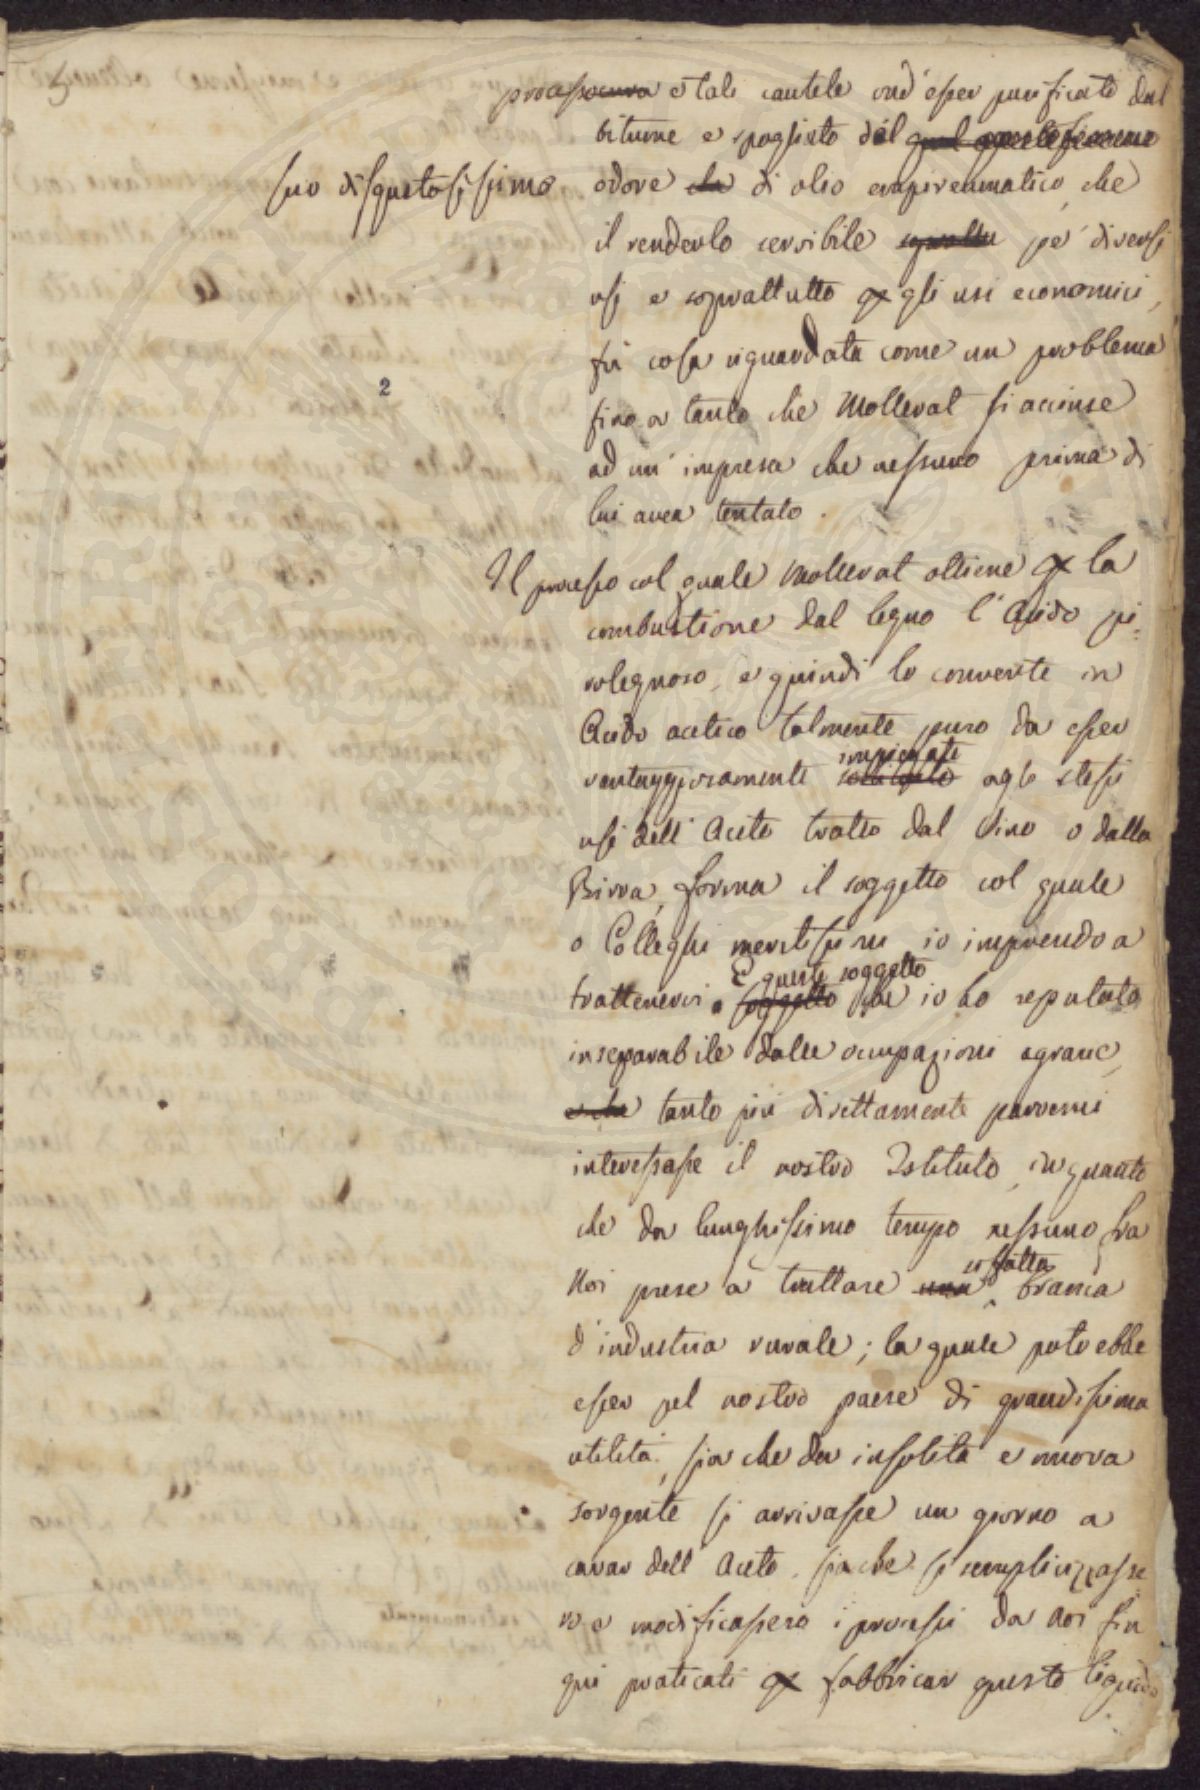 processura e tali cautele ond'esser purificato dal
bitume e spogliato del
suo disgustosissimo odore che di olio empireumatico, che
il renderlo servibile sopratu pe' diversi
usi e soprattutto p gli usi economici,
fu cosa riguardata come un problema
fino a tanto che Mollerat si accinse
ad un' impresa che nessuno prima di
lui avea tentato.
2
Il processo col quale Mollerat ottiene p la
combustione dal legno l'Acido pi=
rolegnoso, e quindi lo converte in
Acido acetico talmente puro da esser
vantaggiosamente impiegato agli stessi
usi dell'Aceto tratto dal Vino o dalla
Birra, forma il soggetto col quale
o Colleghi meritissimi io imprendo a
trattenervi. E questo soggetto soggetto che io ho reputato
inseparabile dalle occupazioni agrarie,
e che tanto più direttamente parvemi
interessasse il nostro Istituto, in quanto
che da lunghissimo tempo nessuno fra
Noi prese a trattare una sì fatta branca
d'industria rurale; la quale potrebbe
esser pel nostro paese di grandissima
utilità, sia che da insolita e nuova
sorgente si arrivasse un giorno a
cavar dell'Aceto, sia che si semplicizzasse
ro e modificassero i processi da Noi fin
qui praticati p fabbricar questo liquido